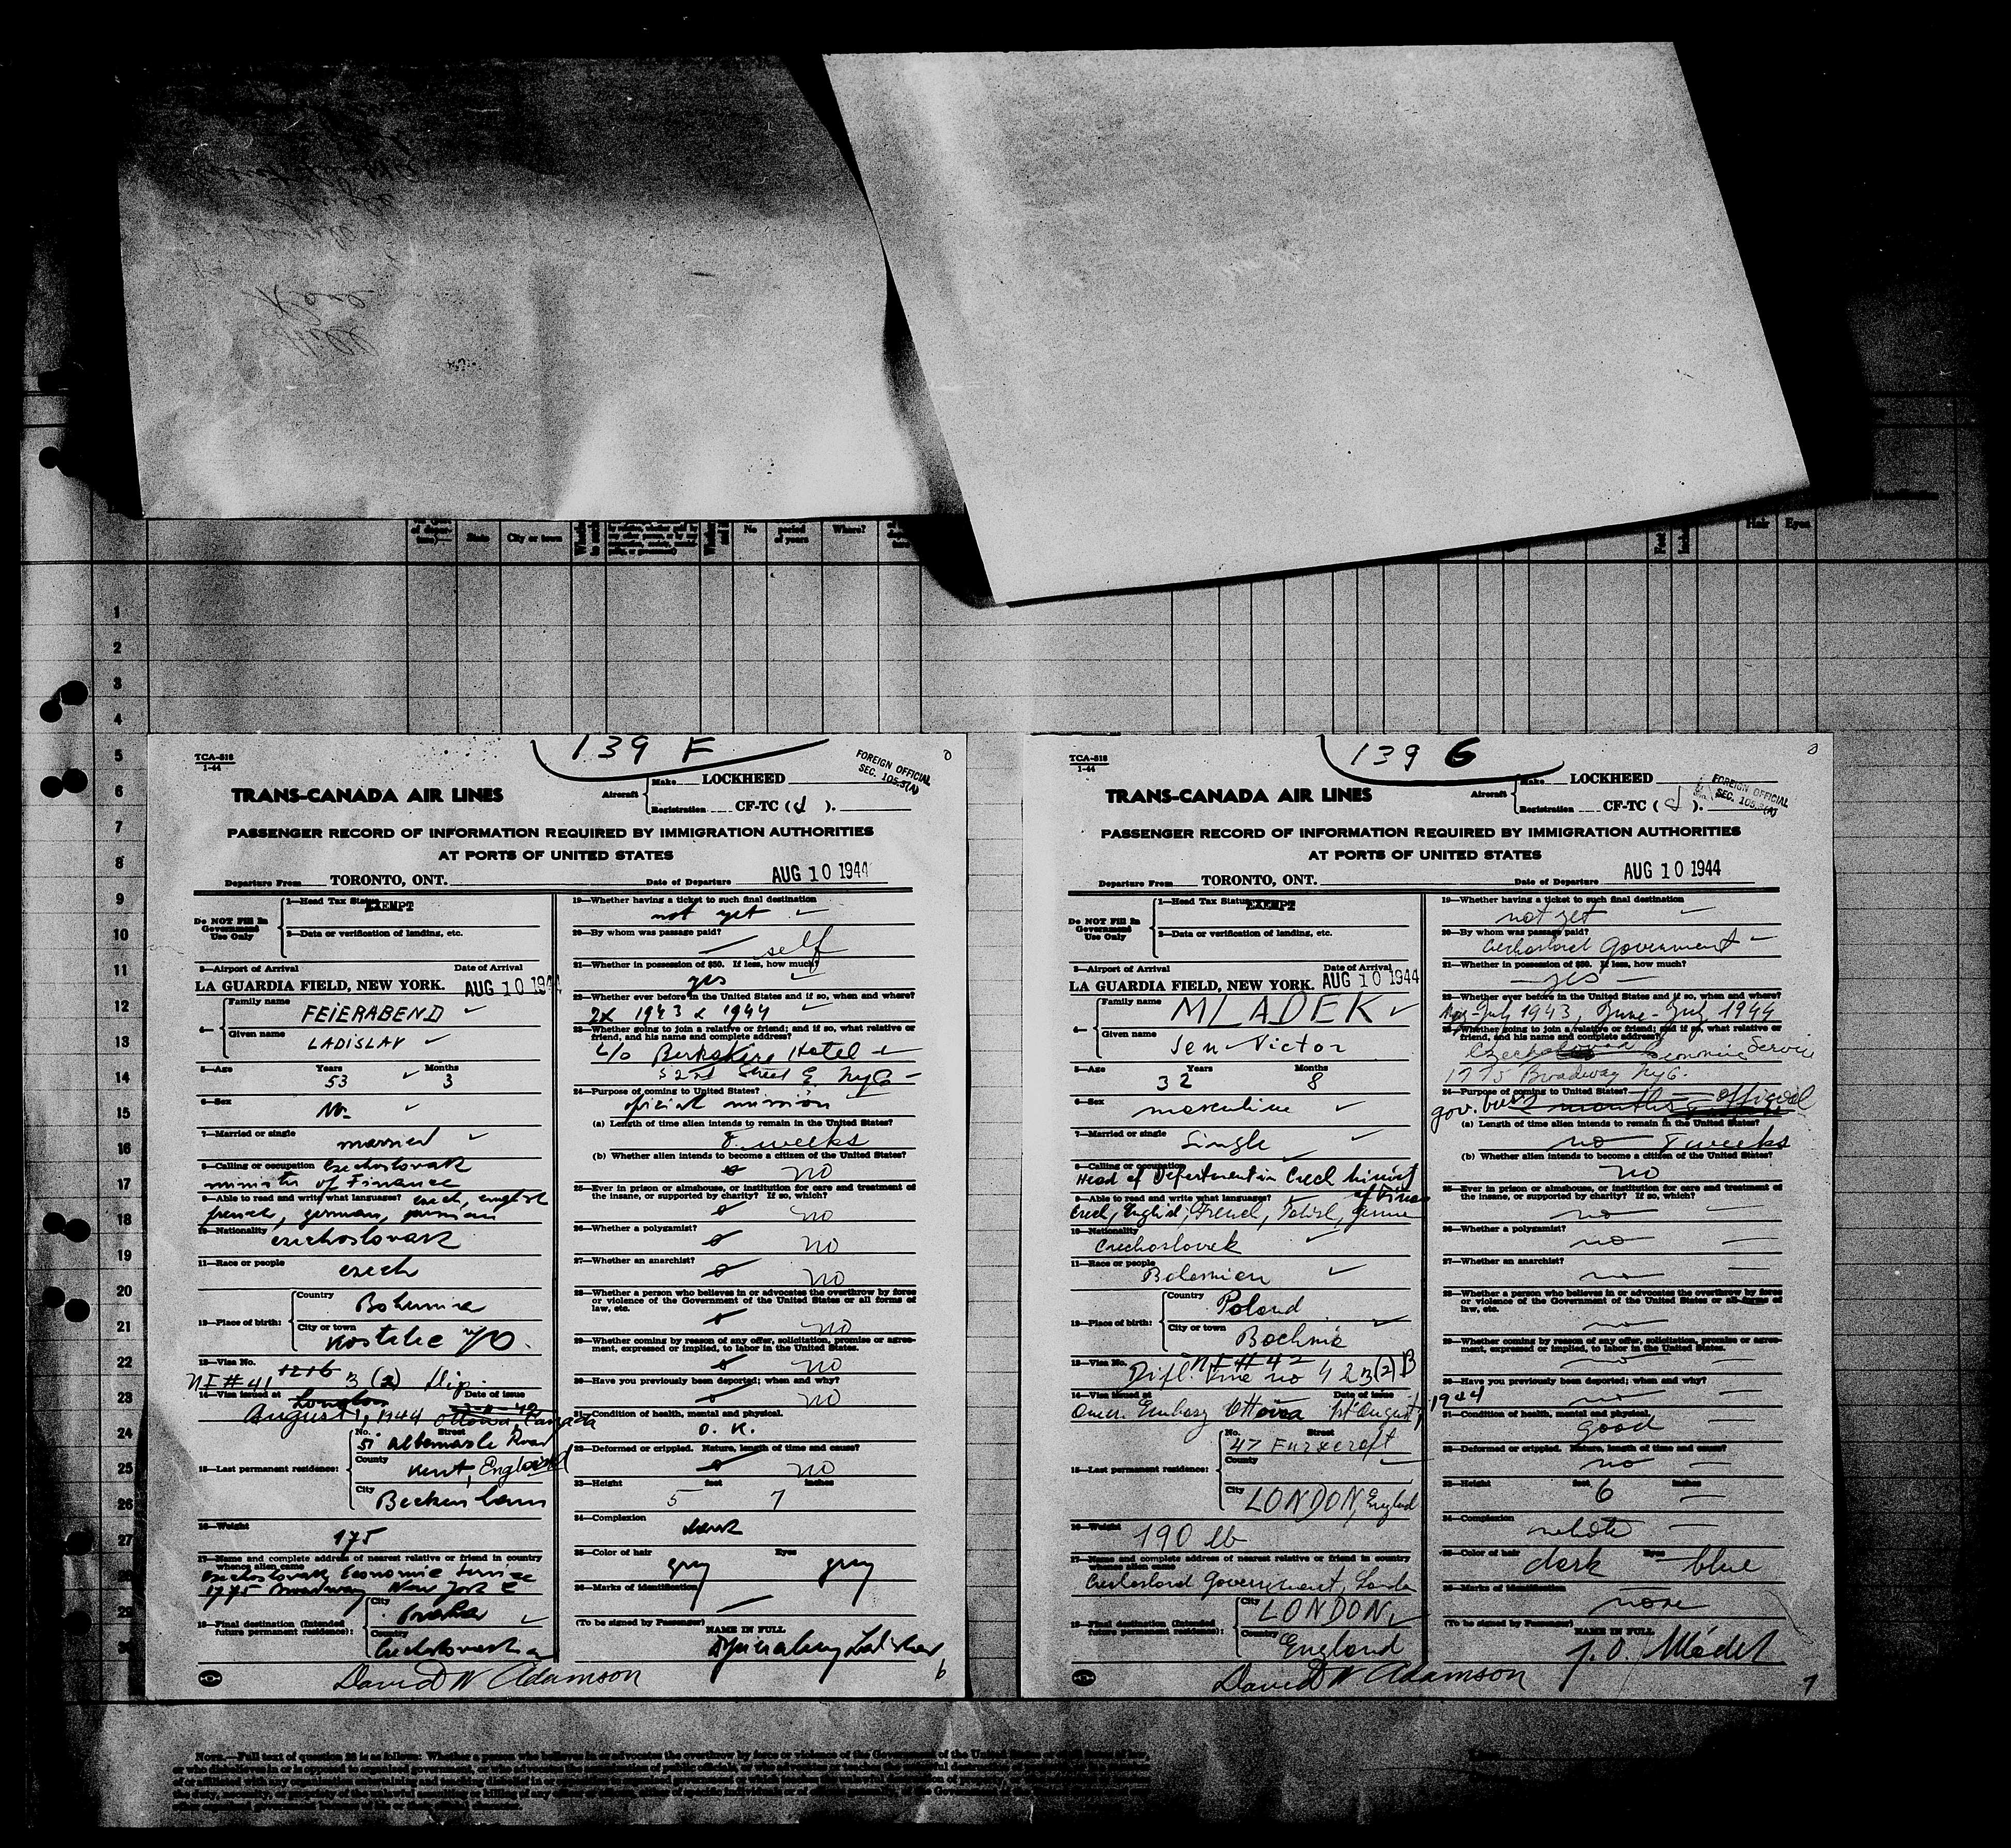 No
period of years
Where?
State
City or town
Hair
Eyes
1
2
3
4
5
6
7
8
9
10
11
12
13
14
15
16
17
18
19
20
21
22
23
24
25
26
27
29
30
139 F
TCA-518
1-44
FOREIGN OFFICIAL
SEC. 105.3(A)
TRANS-CANADA AIR LINES
Aircraft
Make LOCKHEED
Registration CF-TC (J).
PASSENGER RECORD OF INFORMATION REQUIRED BY IMMIGRATION AUTHORITIES
AT PORTS OF UNITED STATES
Departure From TORONTO, ONT. Date of Departure AUG 10 1944
Do NOT Fill In
Government
Use Only
1—Head Tax Status EXEMPT
2—Data or verification of landing, etc.
3—Airport of Arrival Date of Arrival
LA GUARDIA FIELD, NEW YORK. AUG 10 1944
4— Family name
FEIERABEND
Given name
LADISLAV
5—Age Years Months
53 3
6—Sex
M.
7—Married or single
married
8—Calling or occupation Czechoslovak
minister of Finance
9—Able to read and write what languages? czech, english
french, german, russian
10—Nationality
czechoslovak
11—Race or people
czech
12—Place of birth: Country
Bohemia
City or town
Kostelec n/O.
13—Visa No. 1216
NI # 41 3 (2) Dip.
14—Visa issued at London Date of issue
August 1, 1944 Ottawa, Canada
15—Last permanent residence: No. Street
51 Albemarle Road
County
Kent, England
City
Beckenham
16—Weight
175
17—Name and complete address of nearest relative or friend in country
whence alien came
Czechoslovak Economic Service
1775 Broadway New York C
18—Final destination (Intended
future permanent residence):
City
Praha
Country
Czechoslovakia
19—Whether having a ticket to such final destination
not yet
20—By whom was passage paid?
self
21—Whether in possession of $50. If less, how much?
yes
22—Whether ever before in the United States and if so, when and where?
2x 1943 & 1944
23—Whether going to join a relative or friend; and if so, what relative or
friend, and his name and complete address?
c/o Berkshire Hotel
52nd Street E. NYC
24—Purpose of coming to United States?
oficial mission
(a) Length of time alien intends to remain in the United States?
8 weeks
(b) Whether alien intends to become a citizen of the United States?
no
25—Ever in prison or almshouse, or institution for care and treatment of
the insane, or supported by charity? If so, which?
no
26—Whether a polygamist?
no
27—Whether an anarchist?
no
28—Whether a person who believes in or advocates the overthrow by force
or violence of the Government of the United States or all forms of
law, etc.
no
29—Whether coming by reason of any offer, solicitation, promise or agree-
ment, expressed or implied, to labor in the United States.
no
30—Have you previously been deported; when and why?
no
31—Condition of health, mental and physical.
O. K.
32—Deformed or crippled. Nature, length of time and cause?
no
33—Height feet inches
5 7
34—Complexion
dark
35—Color of hair Eyes
grey grey
36—Marks of identification
(To be signed by Passenger)
NAME IN FULL
Ladislav
David W Adamson
6
139 G
TCA-518
1-44
FOREIGN OFFICIAL
SEC. 105.3(A)
TRANS-CANADA AIR LINES
Aircraft
Make LOCKHEED
Registration CF-TC (J).
PASSENGER RECORD OF INFORMATION REQUIRED BY IMMIGRATION AUTHORITIES
AT PORTS OF UNITED STATES
Departure From TORONTO, ONT. Date of Departure AUG 10 1944
Do NOT Fill In
Government
Use Only
1—Head Tax Status EXEMPT
2—Data or verification of landing, etc.
3—Airport of Arrival Date of Arrival
LA GUARDIA FIELD, NEW YORK. AUG 10 1944
4— Family name
MLADEK
Given name
Jen Victor
5—Age Years Months
32 8
6—Sex
masculine
7—Married or single
Single
8—Calling or occupation
Head of Department in Czech Minist
of Finan
9—Able to read and write what languages?
Czech, English, French, Polish, German
10—Nationality
Czechoslovak
11—Race or people
Bohemian
12—Place of birth: Country
Poland
City or town
Bochnia
13—Visa No. NI # 42
Dipl. Vise no 423(2)B
14—Visa issued at Date of issue
Amer. Embasy Ottawa 1st August, 1944
15—Last permanent residence: No. Street
47 Furzecroft
County
City
LONDON, England
16—Weight
190 lb
17—Name and complete address of nearest relative or friend in country
whence alien came
Czechoslovak Government, London
18—Final destination (Intended
future permanent residence):
City
LONDON
Country
England
19—Whether having a ticket to such final destination
not yet
20—By whom was passage paid?
Czechoslovak Government
21—Whether in possession of $50. If less, how much?
yes
22—Whether ever before in the United States and if so, when and where?
May-July 1943, June-July 1944
23—Whether going to join a relative or friend; and if so, what relative or
friend, and his name and complete address?
Czechoslovak Economic Service
1775 Broadway NYC.
24—Purpose of coming to United States?
gov. busn official
(a) Length of time alien intends to remain in the United States?
no 8 weeks
(b) Whether alien intends to become a citizen of the United States?
no
25—Ever in prison or almshouse, or institution for care and treatment of
the insane, or supported by charity? If so, which?
no
26—Whether a polygamist?
no
27—Whether an anarchist?
no
28—Whether a person who believes in or advocates the overthrow by force
or violence of the Government of the United States or all forms of
law, etc.
no
29—Whether coming by reason of any offer, solicitation, promise or agree-
ment, expressed or implied, to labor in the United States.
no
30—Have you previously been deported; when and why?
no
31—Condition of health, mental and physical.
good
32—Deformed or crippled. Nature, length of time and cause?
no
33—Height feet inches
6 —
34—Complexion
white
35—Color of hair Eyes
dark blue
36—Marks of identification
none
(To be signed by Passenger)
NAME IN FULL
J. V. Mládek
David W Adamson
7
NOTE.—Full text of question 28 is as follows: Whether a person who believes in or advocates the overthrow by force or violence of the Government of the United States or all forms of law,